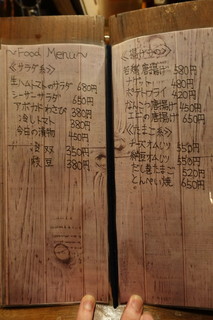 ～Food Menu～
≪サラダ系≫
生ハムトマトのサラダ 680円
シーザーサラダ 650円
アボカドわさび 380円
冷しトマト 380円
今日の漬物 450円
冷奴 350円
枝豆 380円
≪揚げもの≫
若鶏唐揚げ 580円
ナゲット 480円
ポテトフライ 420円
なんこつ唐揚げ 450円
エビの唐揚げ 650円
≪たまご系≫
チーズオムレツ 550円
納豆オムレツ 550円
だし巻たまご 520円
とんぺい焼 650円